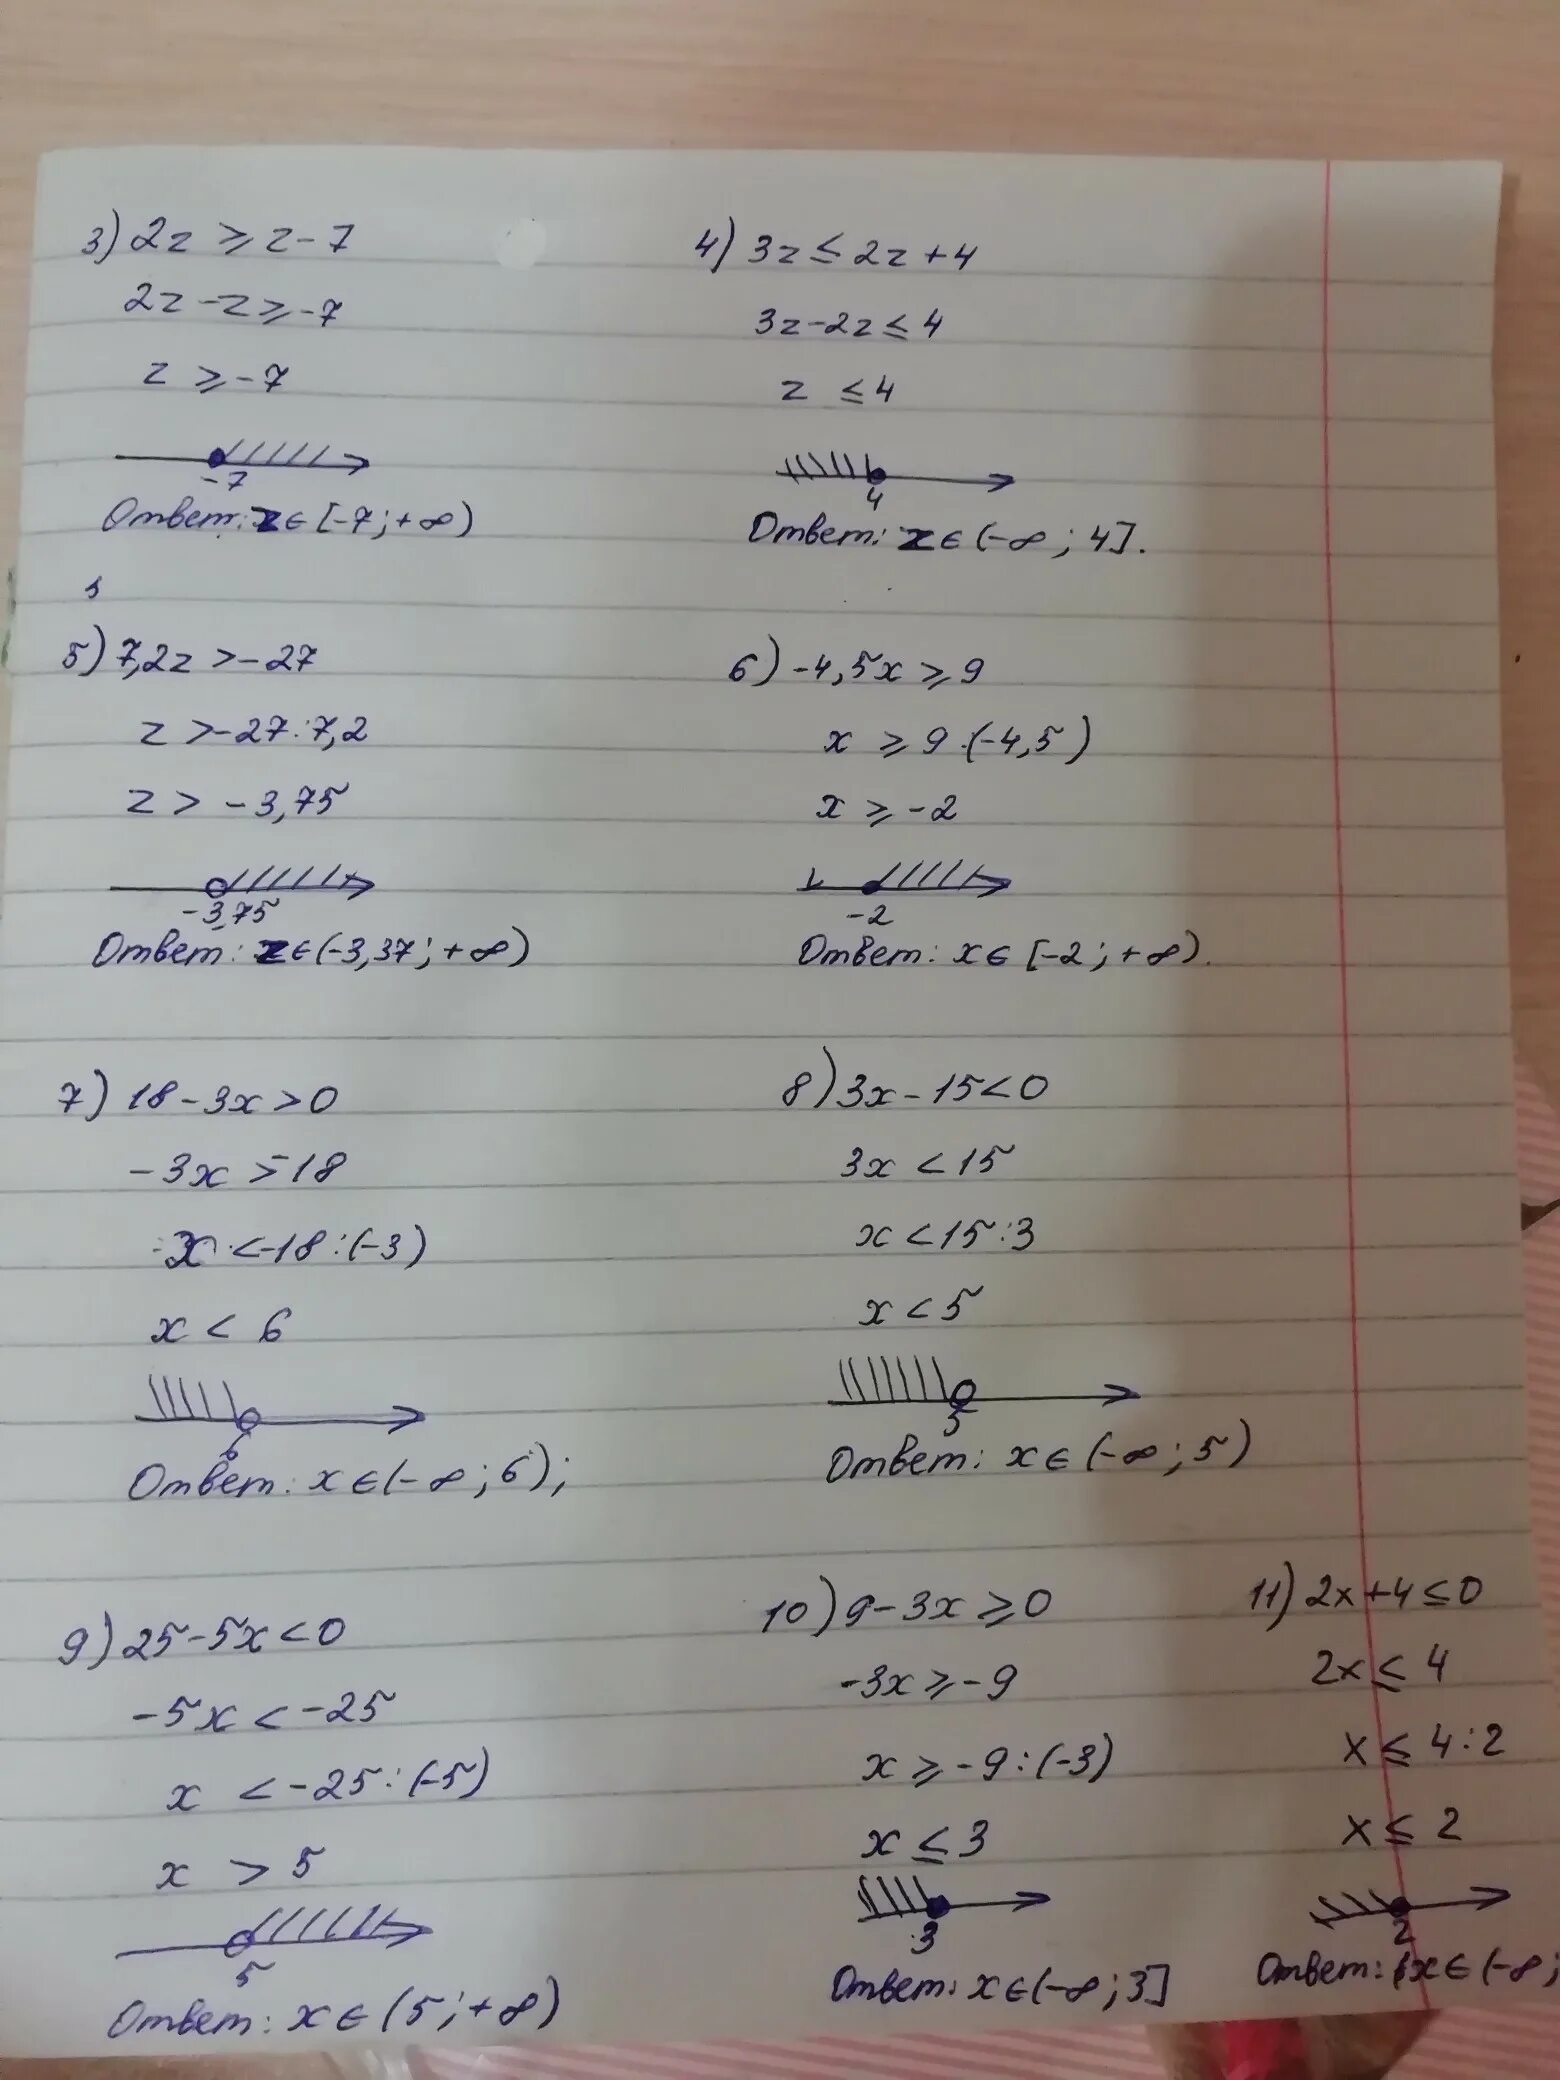 3) 2z ⩾ z - 7
2z - z ⩾ -7
z ⩾ -7
-7
Ответ: z ∈ [-7; +∞)
4) 3z ≤ 2z + 4
3z - 2z ≤ 4
z ≤ 4
4
Ответ: z ∈ (-∞; 4].
5) 7,2z > -27
z > -27 : 7,2
z > -3,75
-3,75
Ответ: z ∈ (-3,37; +∞)
6) -4,5x ⩾ 9
x ⩾ 9 · (-4,5)
x ⩾ -2
-2
Ответ: x ∈ [-2; +∞).
7) 18 - 3x > 0
-3x > -18
x < -18 : (-3)
x < 6
6
Ответ: x ∈ (-∞; 6);
8) 3x - 15 < 0
3x < 15
x < 15 : 3
x < 5
5
Ответ: x ∈ (-∞; 5)
9) 25 - 5x < 0
-5x < -25
x < -25 : (-5)
x > 5
5
Ответ: x ∈ (5; +∞)
10) 9 - 3x ⩾ 0
-3x ⩾ -9
x ⩾ -9 : (-3)
x ≤ 3
3
Ответ: x ∈ (-∞; 3]
11) 2x + 4 ≤ 0
2x ≤ 4
x ≤ 4 : 2
x ≤ 2
2
Ответ: x ∈ (-∞;